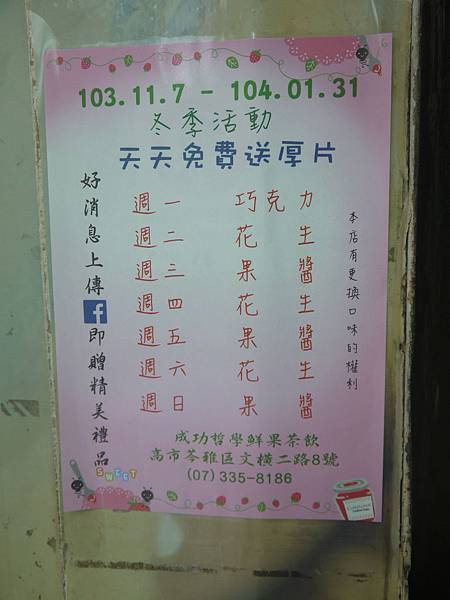 103.11.7 - 104.01.31
冬季活動
天天免費送厚片
好消息上傳f即贈精美禮品
週一 巧克力
週二 花生
週三 果醬
週四 花生
週五 果醬
週六 花生
週日 果醬
本店有更換口味的權利
成功哲學鮮果茶飲
高市苓雅區文橫二路8號
(07)335-8186
SWEET